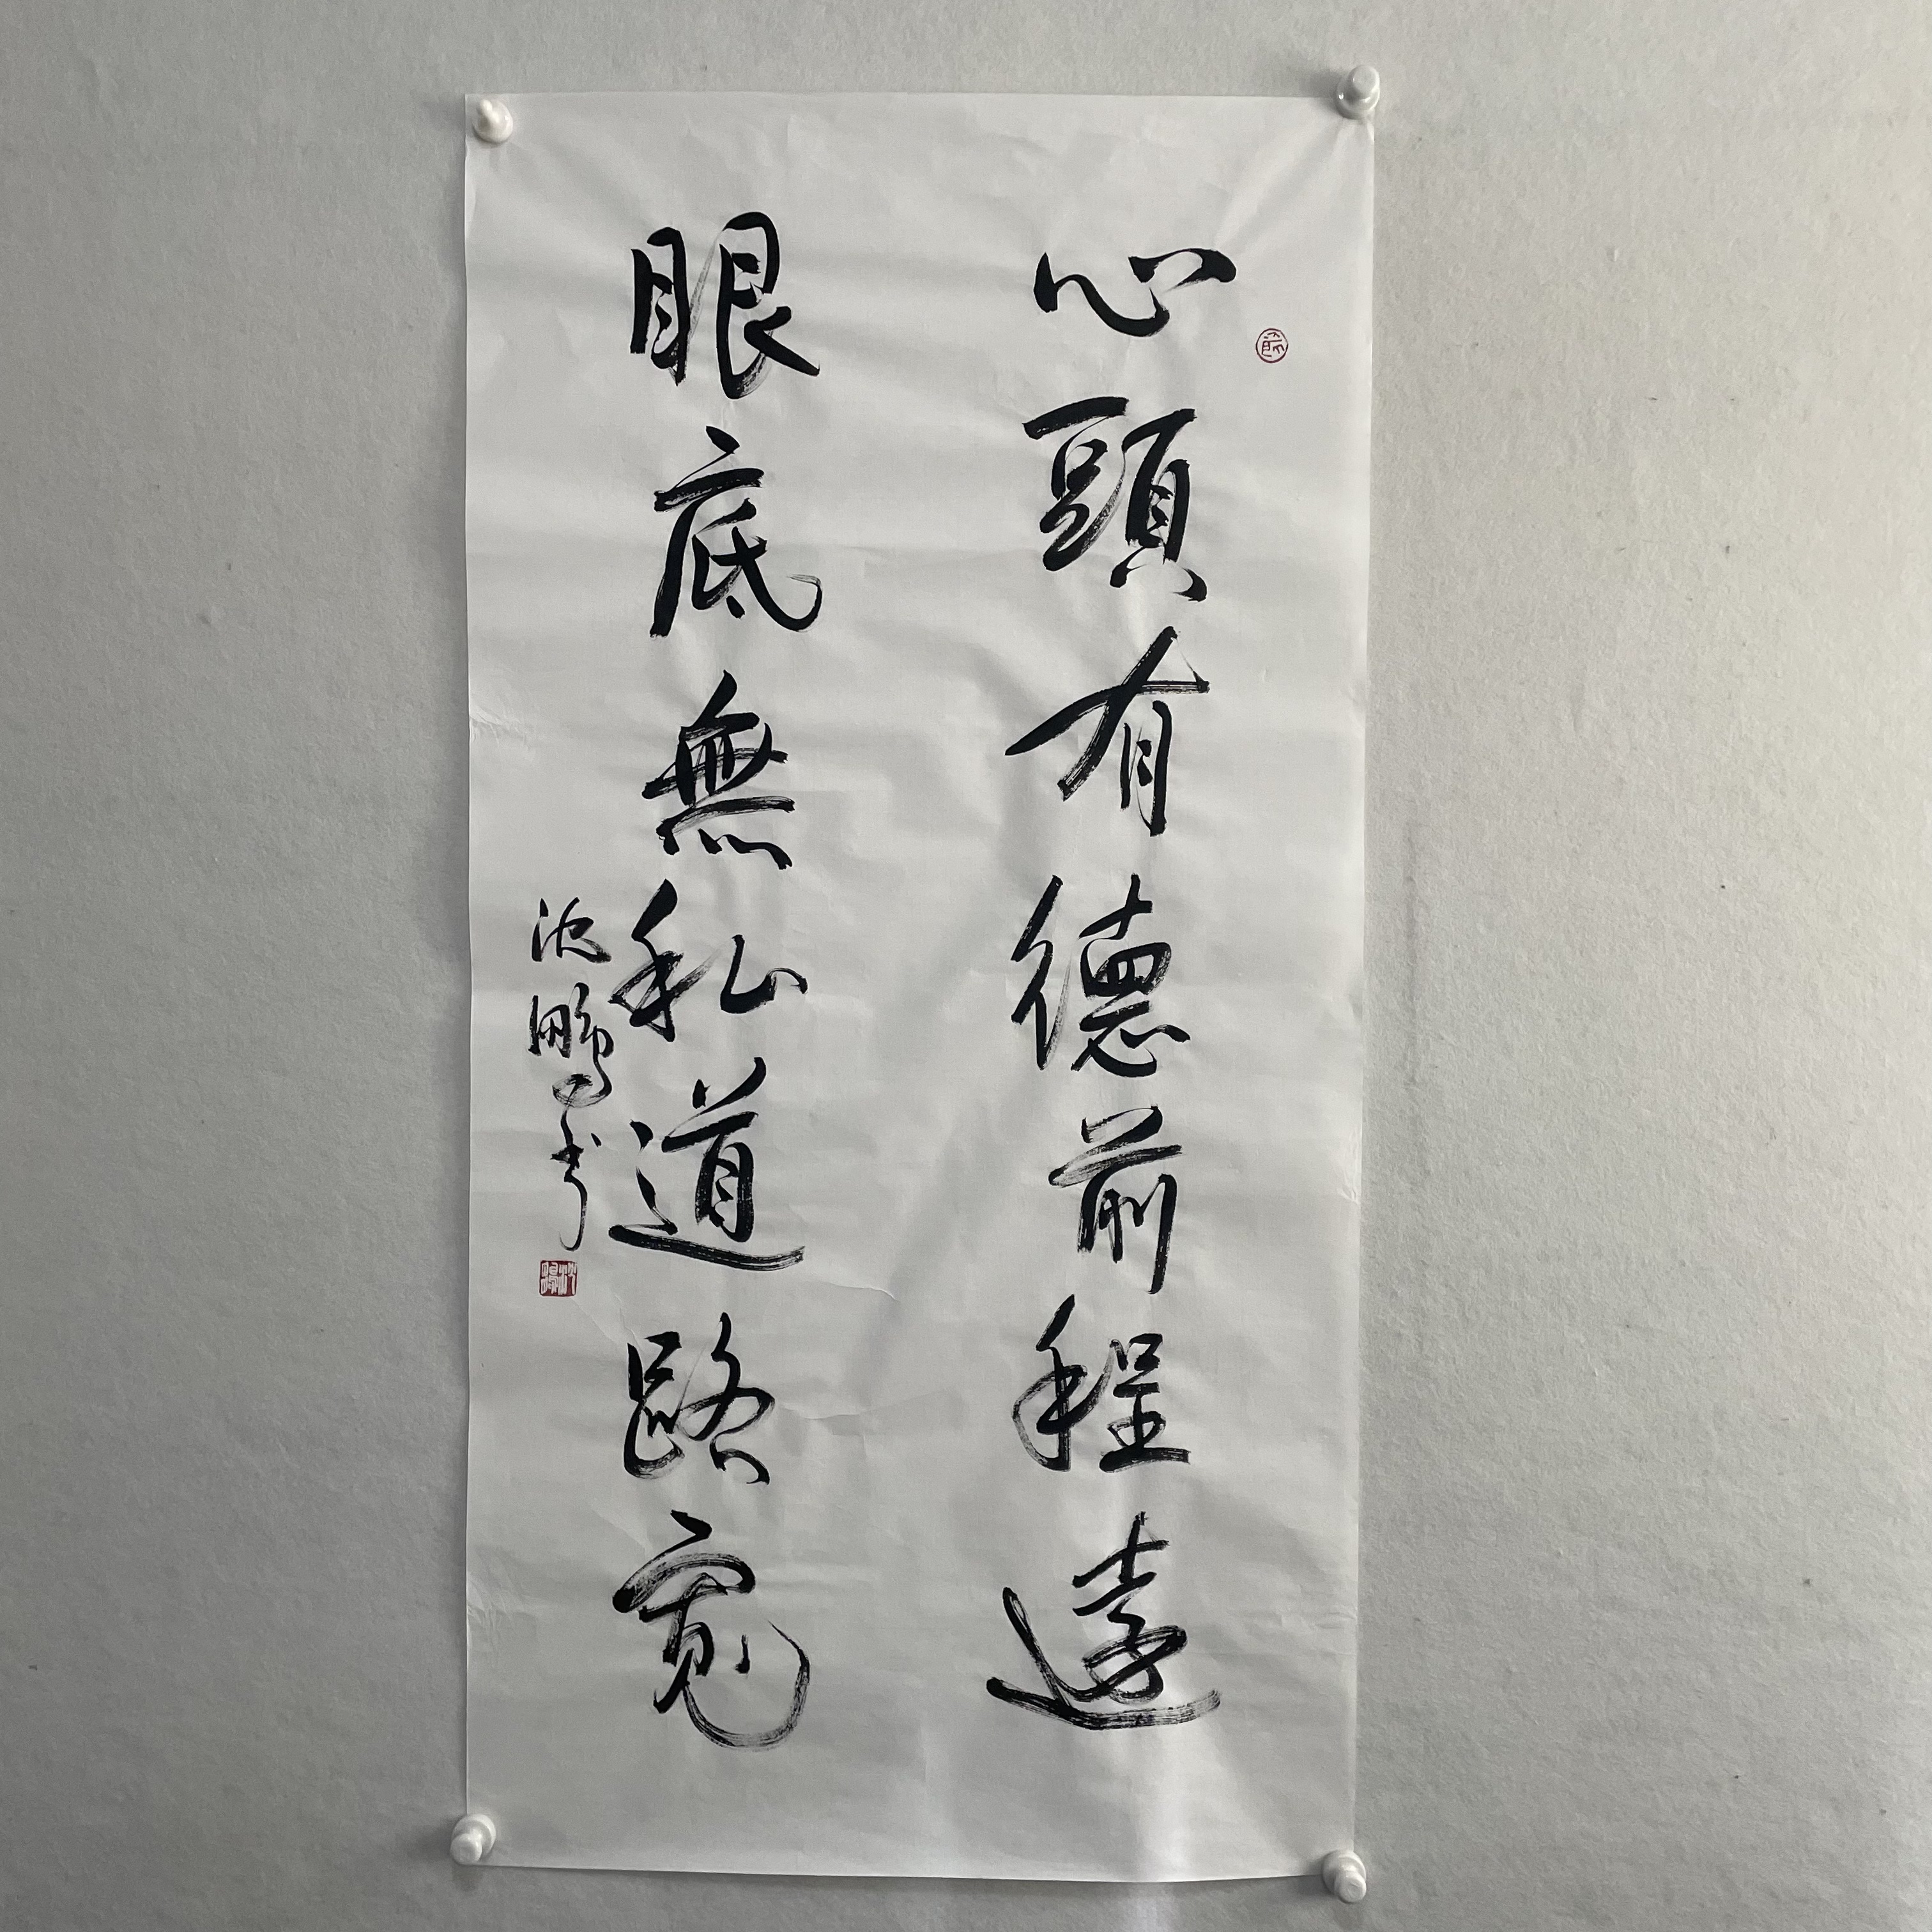 心頭有德前程遠
眼底無私道路寬
沈鵬書